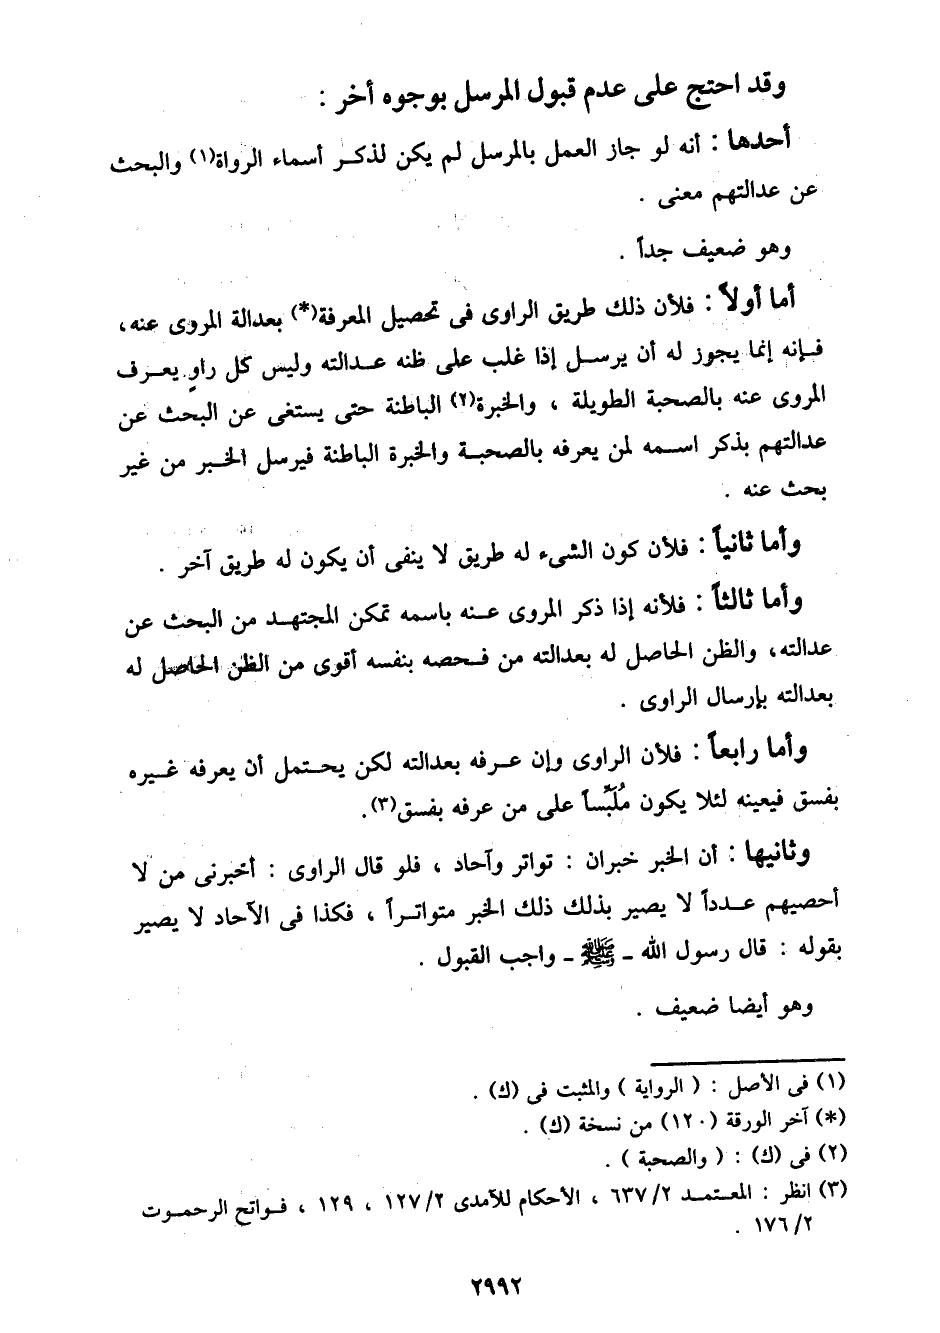 وقد احتج على عدم قبول المرسل بوجوه أخر :
أحدها : أنه لو جاز العمل بالمرسل لم يكن لذكر أسماء الرواة(١) والبحث
عن عدالتهم معنى .
وهو ضعيف جداً .
أما أولاً : فلأن ذلك طريق الراوى فى تحصيل المعرفة(*) بعدالة المروى عنه،
فإنه إنما يجوز له أن يرسل إذا غلب على ظنه عدالته وليس كل راوٍ يعرف
المروى عنه بالصحبة الطويلة ، والخبرة(٢) الباطنة حتى يستغى عن البحث عن
عدالتهم بذكر اسمه لمن يعرفه بالصحبة والخبرة الباطنة فيرسل الخبر من غير
بحث عنه .
وأما ثانياً : فلأن كون الشىء له طريق لا ينفى أن يكون له طريق آخر .
وأما ثالثاً : فلأنه إذا ذكر المروى عنه باسمه تمكن المجتهد من البحث عن
عدالته، والظن الحاصل له بعدالته من فحصه بنفسه أقوى من الظن الحاصل له
بعدالته بإرسال الراوى .
وأما رابعاً : فلأن الراوى وإن عرفه بعدالته لكن يحتمل أن يعرفه غيره
بفسق فيعينه لئلا يكون مُلَبِّساً على من عرفه بفسق(٣).
وثانيها : أن الخبر خبران : تواتر وآحاد ، فلو قال الراوى : أخبرنى من لا
أحصيهم عدداً لا يصير بذلك ذلك الخبر متواتراً ، فكذا فى الآحاد لا يصير
بقوله : قال رسول الله ـ ﷺ ـ واجب القبول .
وهو أيضا ضعيف .
(١) فى الأصل : ( الرواية ) والمثبت فى (ك) .
(*) آخر الورقة (١٢٠) من نسخة (ك) .
(٢) فى (ك) : ( والصحبة ) .
(٣) انظر : المعتمد ٦٣٧/٢ ، الأحكام للآمدى ١٢٧/٢ ، ١٢٩ ، فواتح الرحموت
١٧٦/٢ .
٢٩٩٢